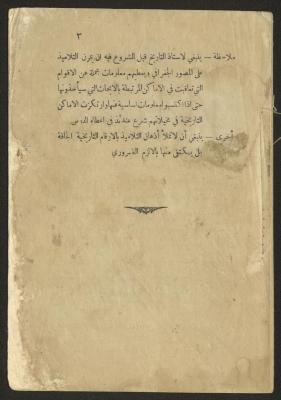 ٣
ملاحظة — ينبغي لاستاذ التاريخ قبل الشروع فيه ان يمرن التلاميذ
على المصور الجغرافي ويعطيهم معلومات مجملة عن الاقوام
التي تعاقبت في الاماكن المرتبطة بالابحاث التي سيأخذونها
حتى اذا اكتسبوا معلومات اساسية عنها وارتكزت الاماكن
التاريخية في مخيلاتهم شرع عندئذ في اعطاء الدرس
أخرى — ينبغي أن لا تملأ أذهان التلاميذ بالارقام التاريخية الجافة
بل يكتفى منها بالالزم الضروري